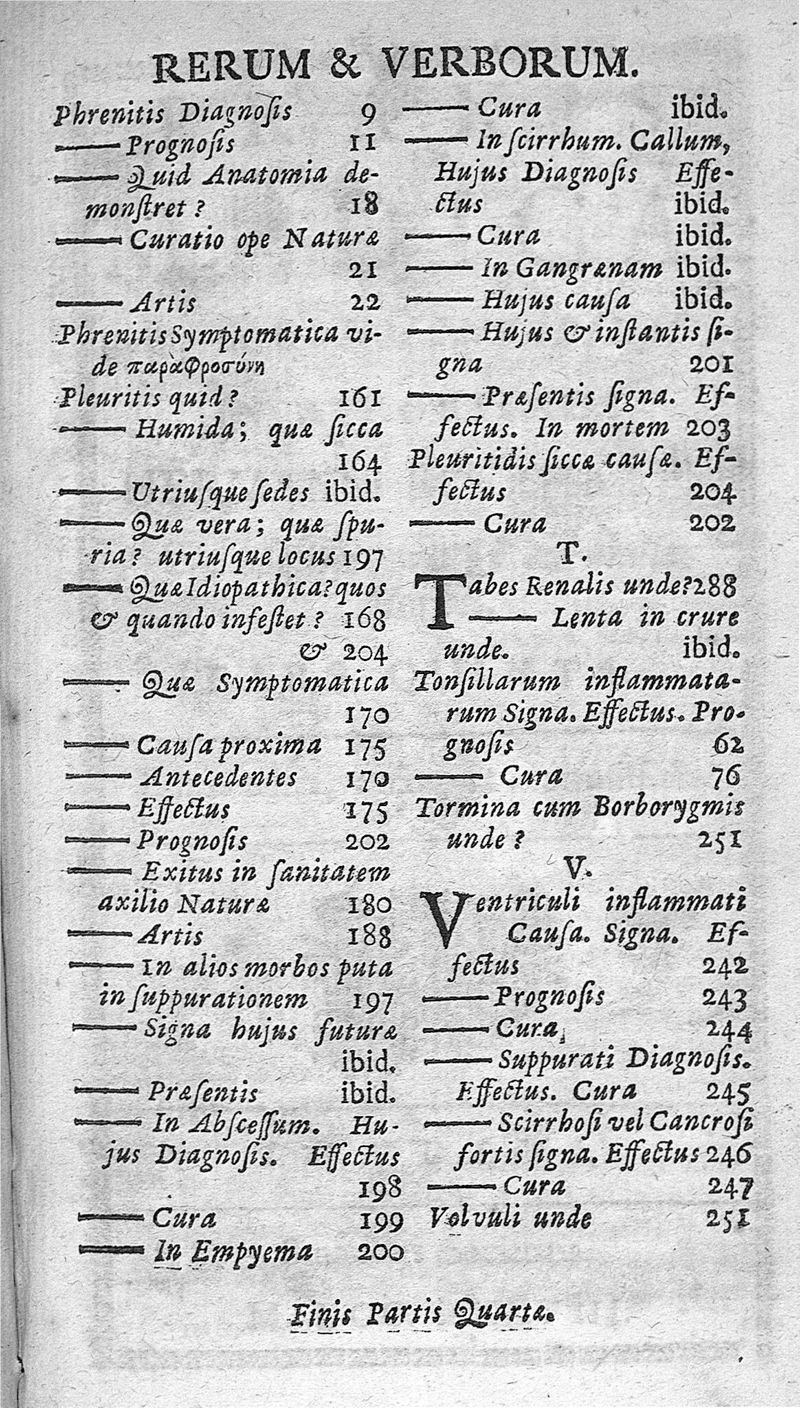 RERUM & VERBORUM.
Phrenitis Diagnoſis 9
—— Prognoſis 11
—— Quid Anatomia de-
monſtret ? 18
—— Curatio ope Naturæ
21
—— Artis 22
Phrenitis Symptomatica vi-
de παραφροσύνη
Pleuritis quid ? 161
—— Humida; quæ ſicca
164
—— Utriuſque ſedes ibid.
—— Quæ vera; quæ ſpu-
ria ? utriuſque locus 197
—— Quæ Idiopathica? quos
& quando infeſtet ? 168
& 204
—— Quæ Symptomatica
170
—— Cauſa proxima 175
—— Antecedentes 170
—— Effectus 175
—— Prognoſis 202
—— Exitus in ſanitatem
axilio Naturæ 180
—— Artis 188
—— In alios morbos puta
in ſuppurationem 197
—— Signa hujus futuræ
ibid.
—— Præſentis ibid.
—— In Abſceſſum. Hu-
jus Diagnoſis. Effectus
198
—— Cura 199
—— In Empyema 200
—— Cura ibid.
—— In ſcirrhum. Callum,
Hujus Diagnoſis Effe-
ctus ibid.
—— Cura ibid.
—— In Gangrænam ibid.
—— Hujus cauſa ibid.
—— Hujus & inſtantis ſi-
gna 201
—— Præſentis ſigna. Ef-
fectus. In mortem 203
Pleuritidis ſiccæ cauſæ. Ef-
fectus 204
—— Cura 202
T.
Tabes Renalis unde? 288
—— Lenta in crure
unde. ibid.
Tonſillarum inflammata-
rum Signa. Effectus. Pro-
gnoſis 62
—— Cura 76
Tormina cum Borborygmis
unde ? 251
V.
Ventriculi inflammati
Cauſa. Signa. Ef-
fectus 242
—— Prognoſis 243
—— Cura 244
—— Suppurati Diagnoſis.
Effectus. Cura 245
—— Scirrhoſi vel Cancroſi
fortis ſigna. Effectus 246
—— Cura 247
Volvuli unde 251
Finis Partis Quartæ.